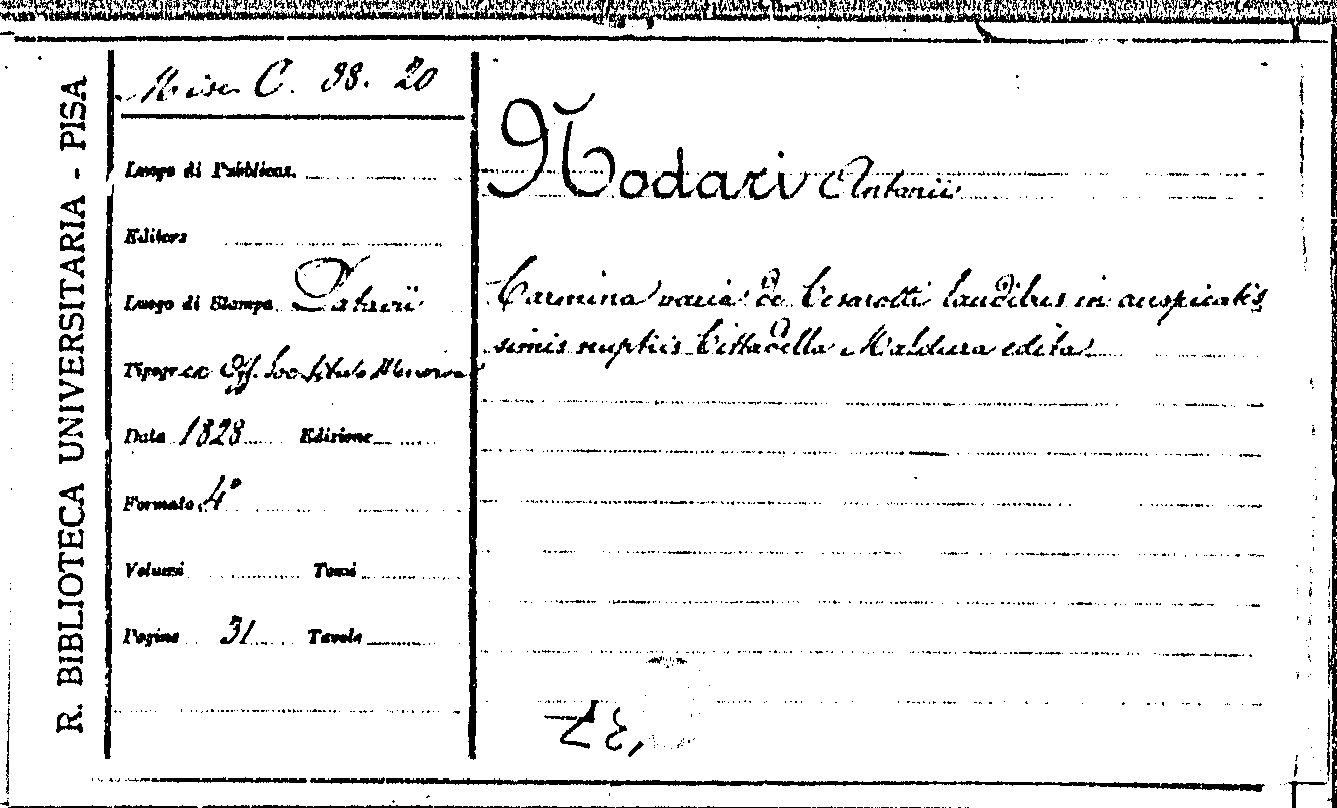 R. BIBLIOTECA UNIVERSITARIA - PISA
Misc. C. 38. 20
Luogo di Pubblicaz.
Editore
Luogo di Stampa Patavii
Tipogr. ex Off. Soc. titulo Minervae
Data 1828 Edizione
Formato 4°
Volumi Tomi
Pagine 31 Tavole
Nodari Antonii
Carmina varia de Cesarotti laudibus in auspicatis
simis nuptiis Cittadella Maldura edita